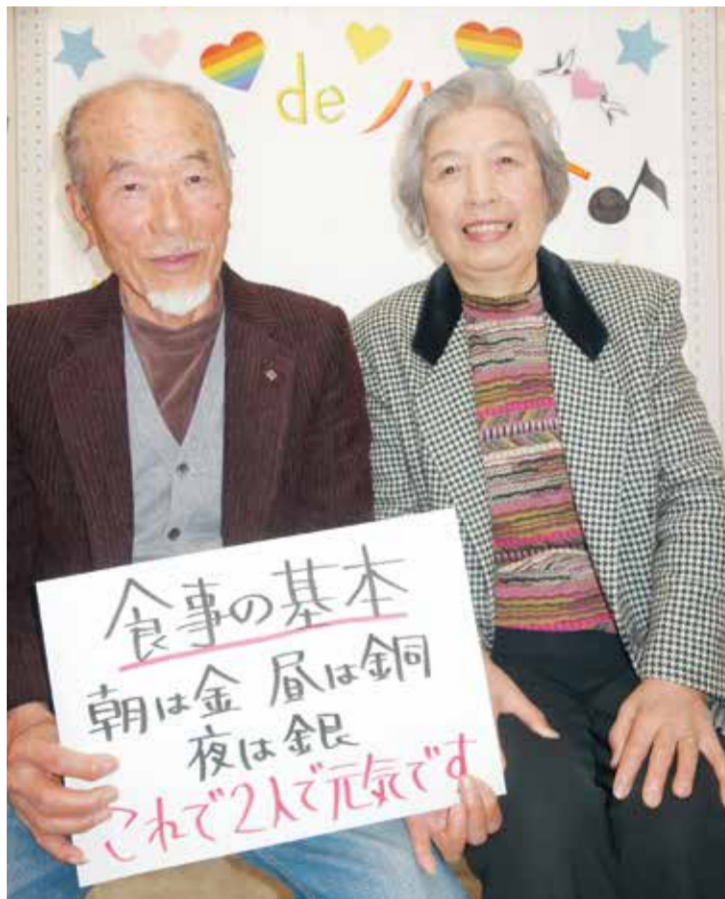 de ハ
食事の基本
朝は金 昼は銅
夜は銀
これで2人で元気です